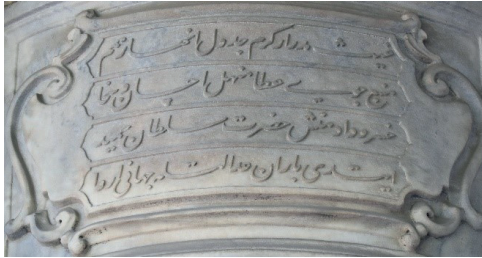 غیث مدرار کرم جدول انهار نعم
منبع عطا منهل احسان و سخا
خسرو داد منش حضرت سلطان حمید
ایتدی باران عدالتله جهانی اروا